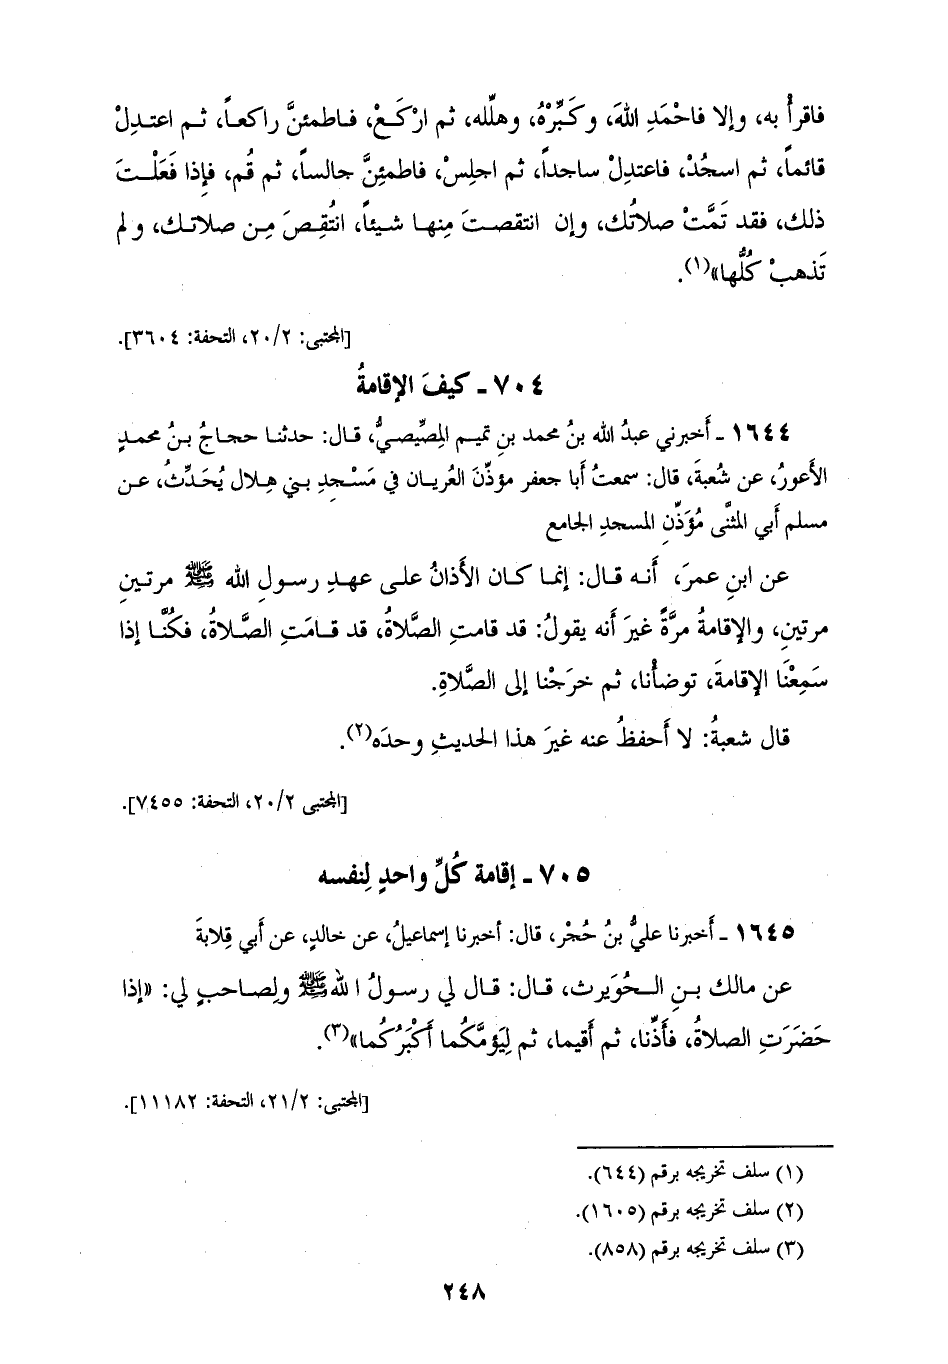 فاقرأْ به، وإلا فاحْمَدِ اللهَ، وكَبِّرْهُ، وهلِّله، ثم ارْكَعْ، فاطمئنَّ راكعاً، ثم اعتدِلْ
قائماً، ثم اسجُدْ، فاعتدِلْ ساجداً، ثم اجلِسْ، فاطمئِنَّ جالساً، ثم قُم، فإذا فَعَلْتَ
ذلك، فقد تَمَّتْ صلاتُك، وإن انتقصتَ مِنها شيئاً، انتُقِصَ مِن صلاتك، ولم
تَذهبْ كُلُّها»(١).
[المجتبى: ٢٠/٢، التحفة: ٣٦٠٤].
٧٠٤ ـ كيفَ الإقامةُ
١٦٤٤ ـ أَخبرني عبدُ الله بنُ محمد بنِ تميم المِصِّيصيُّ، قال: حدثنا حجاجُ بنُ محمدٍ
الأَعورُ، عن شُعبةَ، قال: سمعتُ أبا جعفر مؤذِّنَ العُريان في مَسْجدِ بني هِلال يُحَدِّثُ، عن
مسلم أبي المثنَّى مُؤَذِّنِ المسجدِ الجامع
عن ابنِ عمرَ، أَنه قال: إنما كان الأَذانُ على عهدِ رسولِ الله ﷺ مرتينِ
مرتينِ، والإقامةُ مرَّةً غيرَ أنه يقولُ: قد قامتِ الصَّلاةُ، قد قامَتِ الصَّلاةُ، فكُنَّا إذا
سَمِعْنَا الإقامةَ، توضأْنا، ثم خرَجْنا إلى الصَّلاةِ.
قال شعبةُ: لا أَحفظُ عنه غيرَ هذا الحديثِ وحدَه(٢).
[المجتبى ٢٠/٢، التحفة: ٧٤٥٥].
٧٠٥ ـ إقامة كُلِّ واحدٍ لِنفسه
١٦٤٥ ـ أَخبرنا عليُّ بنُ حُجْر، قال: أخبرنا إسماعيلُ، عن خالدٍ، عن أَبي قِلابةَ
عن مالك بنِ الحُوَيرث، قال: قال لي رسولُ اللهﷺ ولِصاحبٍ لي: «إذا
حَضَرَتِ الصلاةُ، فأَذِّنا، ثم أَقيما، ثم لِيَؤمَّكُما أَكْبَرُكُما»(٣).
[المجتبى: ٢١/٢، التحفة: ١١١٨٢].
(١) سلف تخريجه برقم (٦٤٤).
(٢) سلف تخريجه برقم (١٦٠٥).
(٣) سلف تخريجه برقم (٨٥٨).
٢٤٨